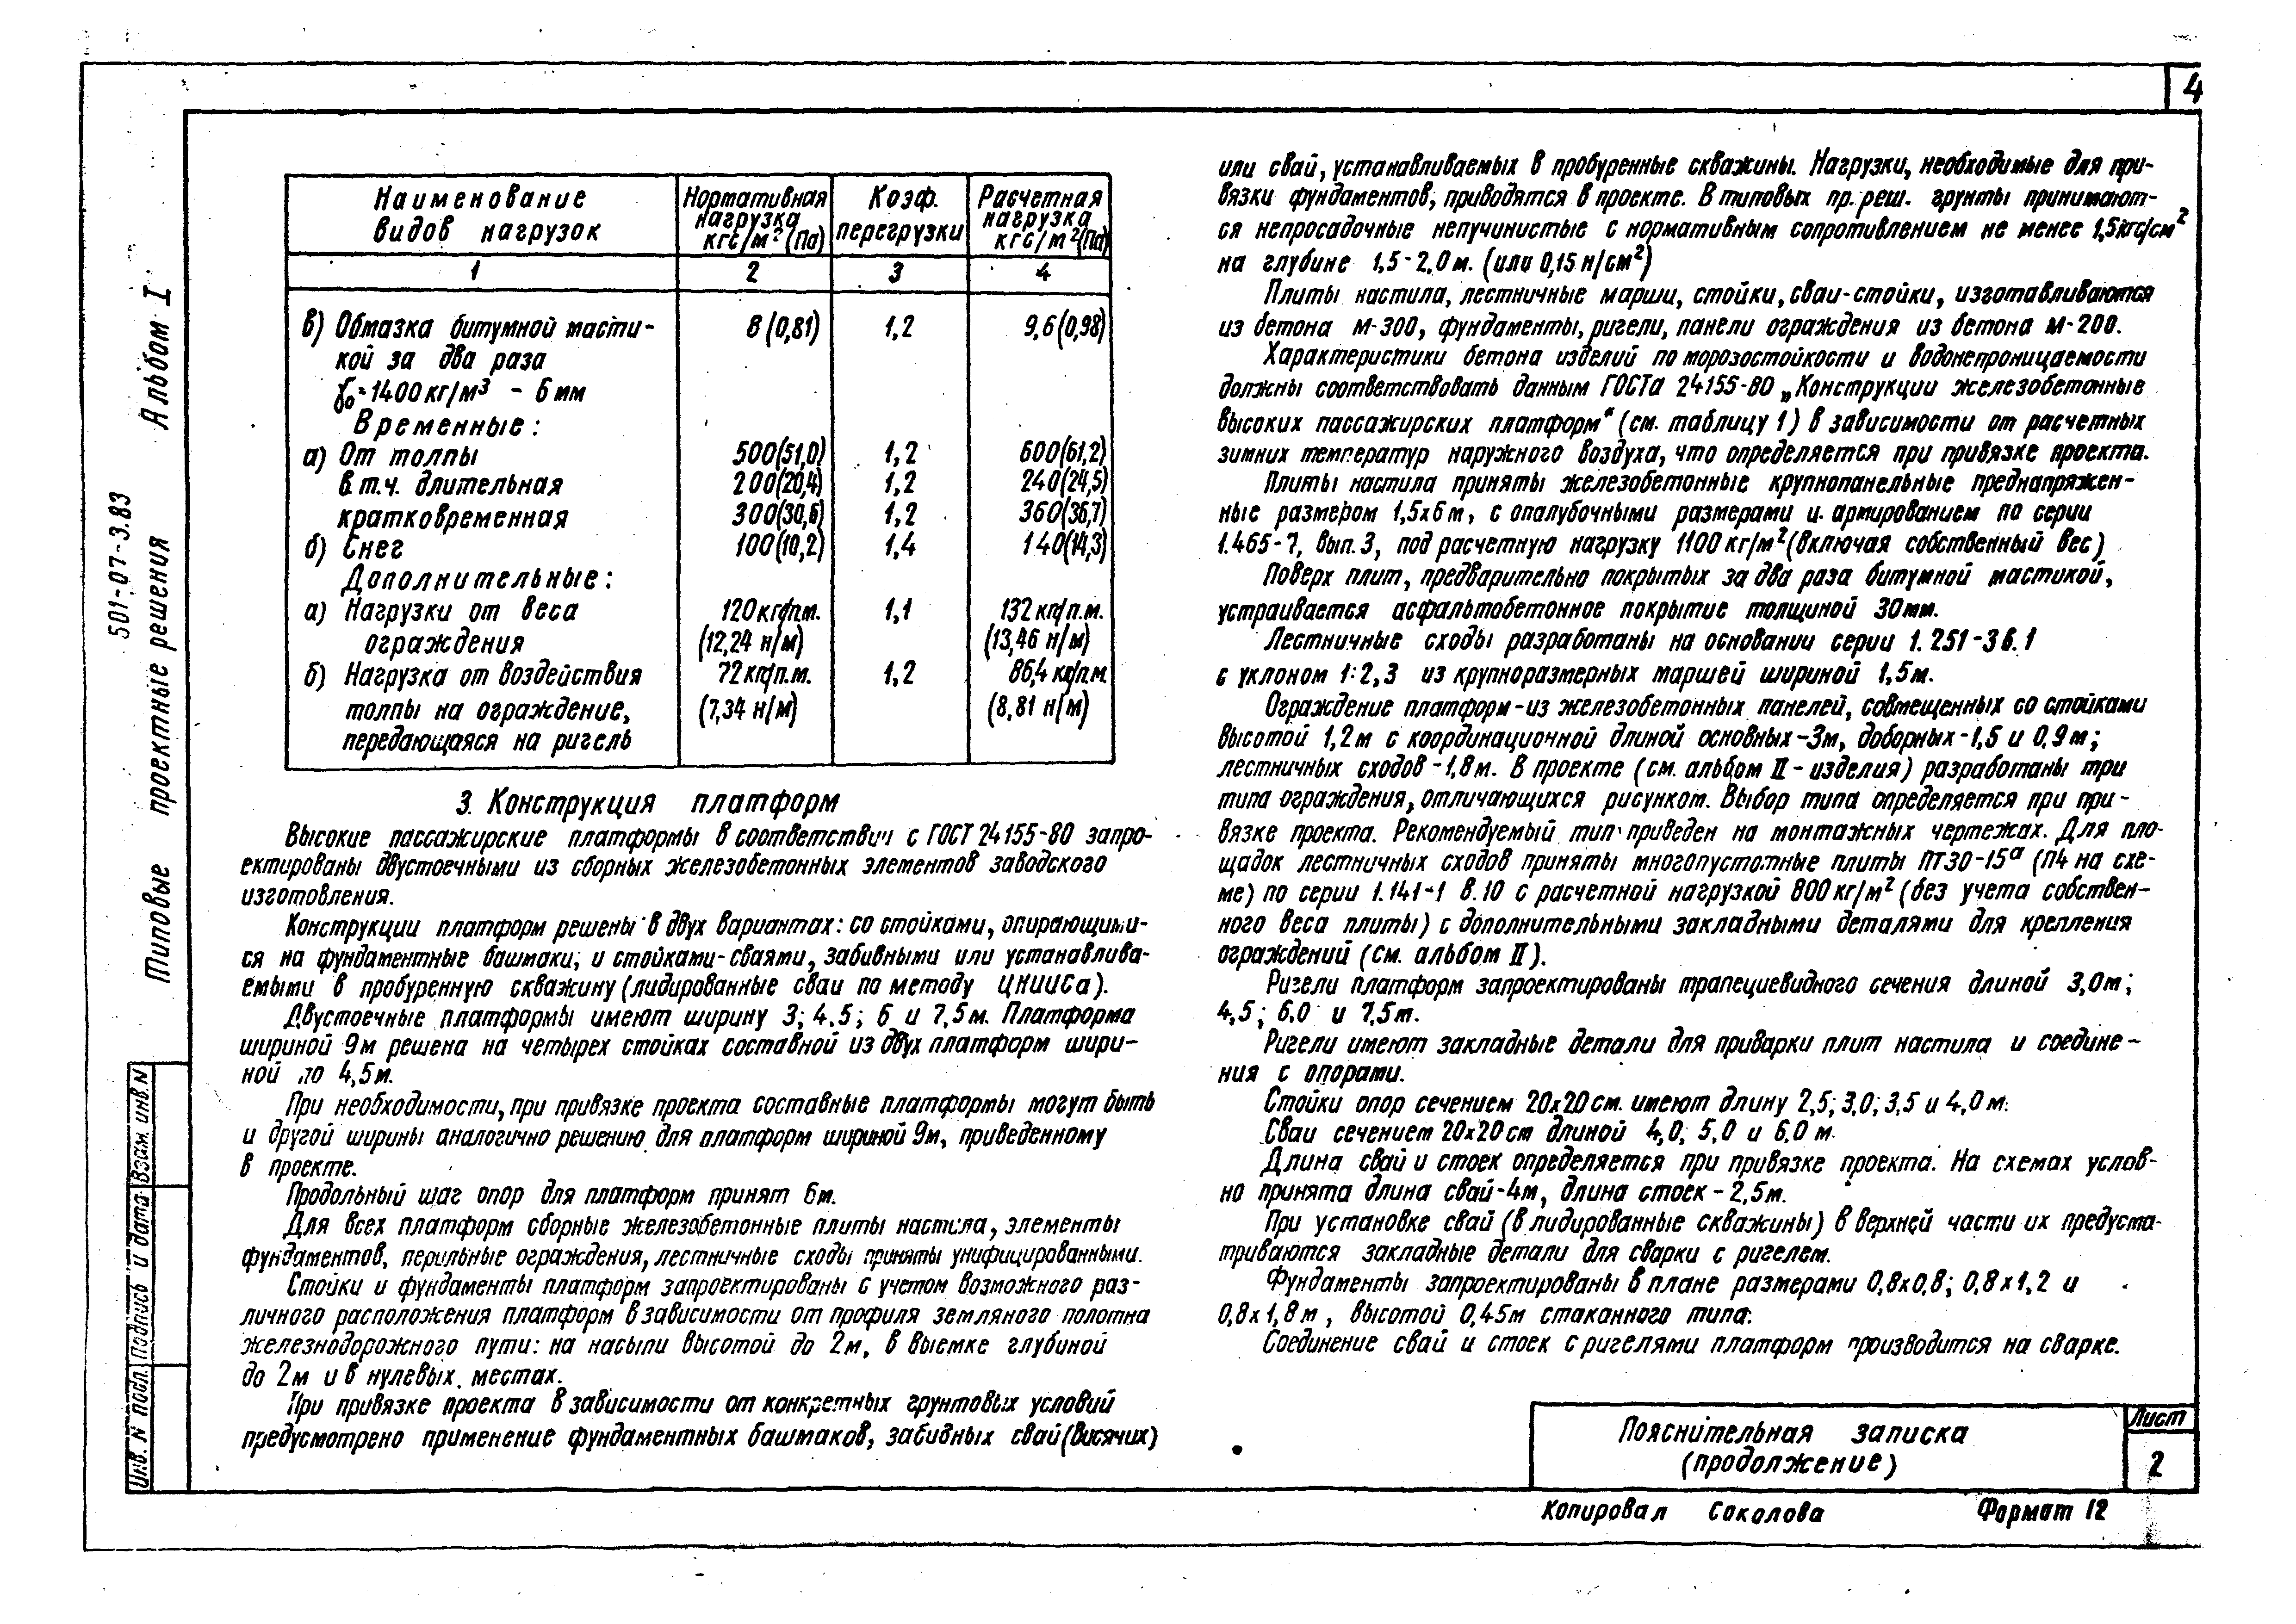 4
501-07-3.83
Типовые проектные решения Альбом I
Наименование видов нагрузок | Нормативная нагрузка кгс/м² (Па) | Коэф. перегрузки | Расчетная нагрузка кгс/м² (Па)
1 | 2 | 3 | 4
в) Обмазка битумной масти- | 8 (0,81) | 1,2 | 9,6 (0,98)
кой за два раза
γ₀=1400 кг/м³ - 6 мм
Временные:
а) От толпы | 500 (51,0) | 1,2 | 600 (61,2)
в т.ч. длительная | 200 (20,4) | 1,2 | 240 (24,5)
кратковременная | 300 (30,6) | 1,2 | 360 (36,7)
б) Снег | 100 (10,2) | 1,4 | 140 (14,3)
Дополнительные:
а) Нагрузки от веса | 120 кг/п.м. | 1,1 | 132 кг/п.м.
ограждения | (12,24 н/м) | (13,46 н/м)
б) Нагрузка от воздействия | 72 кг/п.м. | 1,2 | 86,4 кг/п.м.
толпы на ограждение, | (7,34 н/м) | (8,81 н/м)
передающаяся на ригель
3. Конструкция платформ
Высокие пассажирские платформы в соответствии с ГОСТ 24155-80 запро-
ектированы двустоечными из сборных железобетонных элементов заводского
изготовления.
Конструкции платформ решены в двух вариантах: со стойками, опирающими-
ся на фундаментные башмаки, и стойками-сваями, забивными или устанавлива-
емыми в пробуренную скважину (лидированные сваи по методу ЦНИИСа).
Двустоечные платформы имеют ширину 3; 4,5; 6 и 7,5 м. Платформа
шириной 9м решена на четырех стойках составной из двух платформ шири-
ной по 4,5м.
При необходимости, при привязке проекта составные платформы могут быть
и другой ширины аналогично решению для платформ шириной 9м, приведенному
в проекте.
Продольный шаг опор для платформ принят 6м.
Для всех платформ сборные железобетонные плиты настила, элементы
фундаментов, перильные ограждения, лестничные сходы приняты унифицированными.
Стойки и фундаменты платформ запроектированы с учетом возможного раз-
личного расположения платформ в зависимости от профиля земляного полотна
железнодорожного пути: на насыпи высотой до 2м, в выемке глубиной
до 2м и в нулевых местах.
При привязке проекта в зависимости от конкретных грунтовых условий
предусмотрено применение фундаментных башмаков, забивных свай (висячих)
или свай, устанавливаемых в пробуренные скважины. Нагрузки, необходимые для при-
вязки фундаментов, приводятся в проекте. В типовых пр. реш. грунты принимают-
ся непросадочные непучинистые с нормативным сопротивлением не менее 1,5кгс/см²
на глубине 1,5-2,0 м. (или 0,15 н/см²)
Плиты настила, лестничные марши, стойки, сваи-стойки, изготавливаются
из бетона М-300, фундаменты, ригели, панели ограждения из бетона М-200.
Характеристики бетона изделий по морозостойкости и водонепроницаемости
должны соответствовать данным ГОСТа 24155-80 „Конструкции железобетонные
высоких пассажирских платформ“ (см. таблицу 1) в зависимости от расчетных
зимних температур наружного воздуха, что определяется при привязке проекта.
Плиты настила приняты железобетонные крупнопанельные преднапряжен-
ные размером 1,5х6 м, с опалубочными размерами и армированием по серии
1.465-7, вып. 3, под расчетную нагрузку 1100 кг/м² (включая собственный вес)
Поверх плит, предварительно покрытых за два раза битумной мастикой,
устраивается асфальтобетонное покрытие толщиной 30мм.
Лестничные сходы разработаны на основании серии 1.251-3 в.1
с уклоном 1:2,3 из крупноразмерных маршей шириной 1,5м.
Ограждение платформ-из железобетонных панелей, совмещенных со стойками
высотой 1,2м с координационной длиной основных-3м, доборных-1,5 и 0,9 м;
лестничных сходов-1,8 м. В проекте (см. альбом II - изделия) разработаны три
типа ограждения, отличающихся рисунком. Выбор типа определяется при при-
вязке проекта. Рекомендуемый тип приведен на монтажных чертежах. Для пло-
щадок лестничных сходов приняты многопустотные плиты ПТ30-15ᵃ (П4 на схе-
ме) по серии 1.141-1 в.10 с расчетной нагрузкой 800 кг/м² (без учета собствен-
ного веса плиты) с дополнительными закладными деталями для крепления
ограждений (см. альбом II).
Ригели платформ запроектированы трапециевидного сечения длиной 3,0м;
4,5; 6,0 и 7,5м.
Ригели имеют закладные детали для приварки плит настила и соедине-
ния с опорами.
Стойки опор сечением 20х20см. имеют длину 2,5; 3,0; 3,5 и 4,0 м.
Сваи сечением 20х20см длиной 4,0; 5,0 и 6,0 м.
Длина свай и стоек определяется при привязке проекта. На схемах услов-
но принята длина свай-4м, длина стоек-2,5м.
При установке свай (в лидированные скважины) в верхней части их предуста-
триваются закладные детали для сварки с ригелем.
Фундаменты запроектированы в плане размерами 0,8х0,8; 0,8х1,2 и
0,8х1,8 м, высотой 0,45м стаканного типа.
Соединение свай и стоек с ригелями платформ производится на сварке.
Инв. N подл. Подпись и дата Взам. инв. N
Пояснительная записка
(продолжение)
Лист
2
Копировал Соколова Формат 12